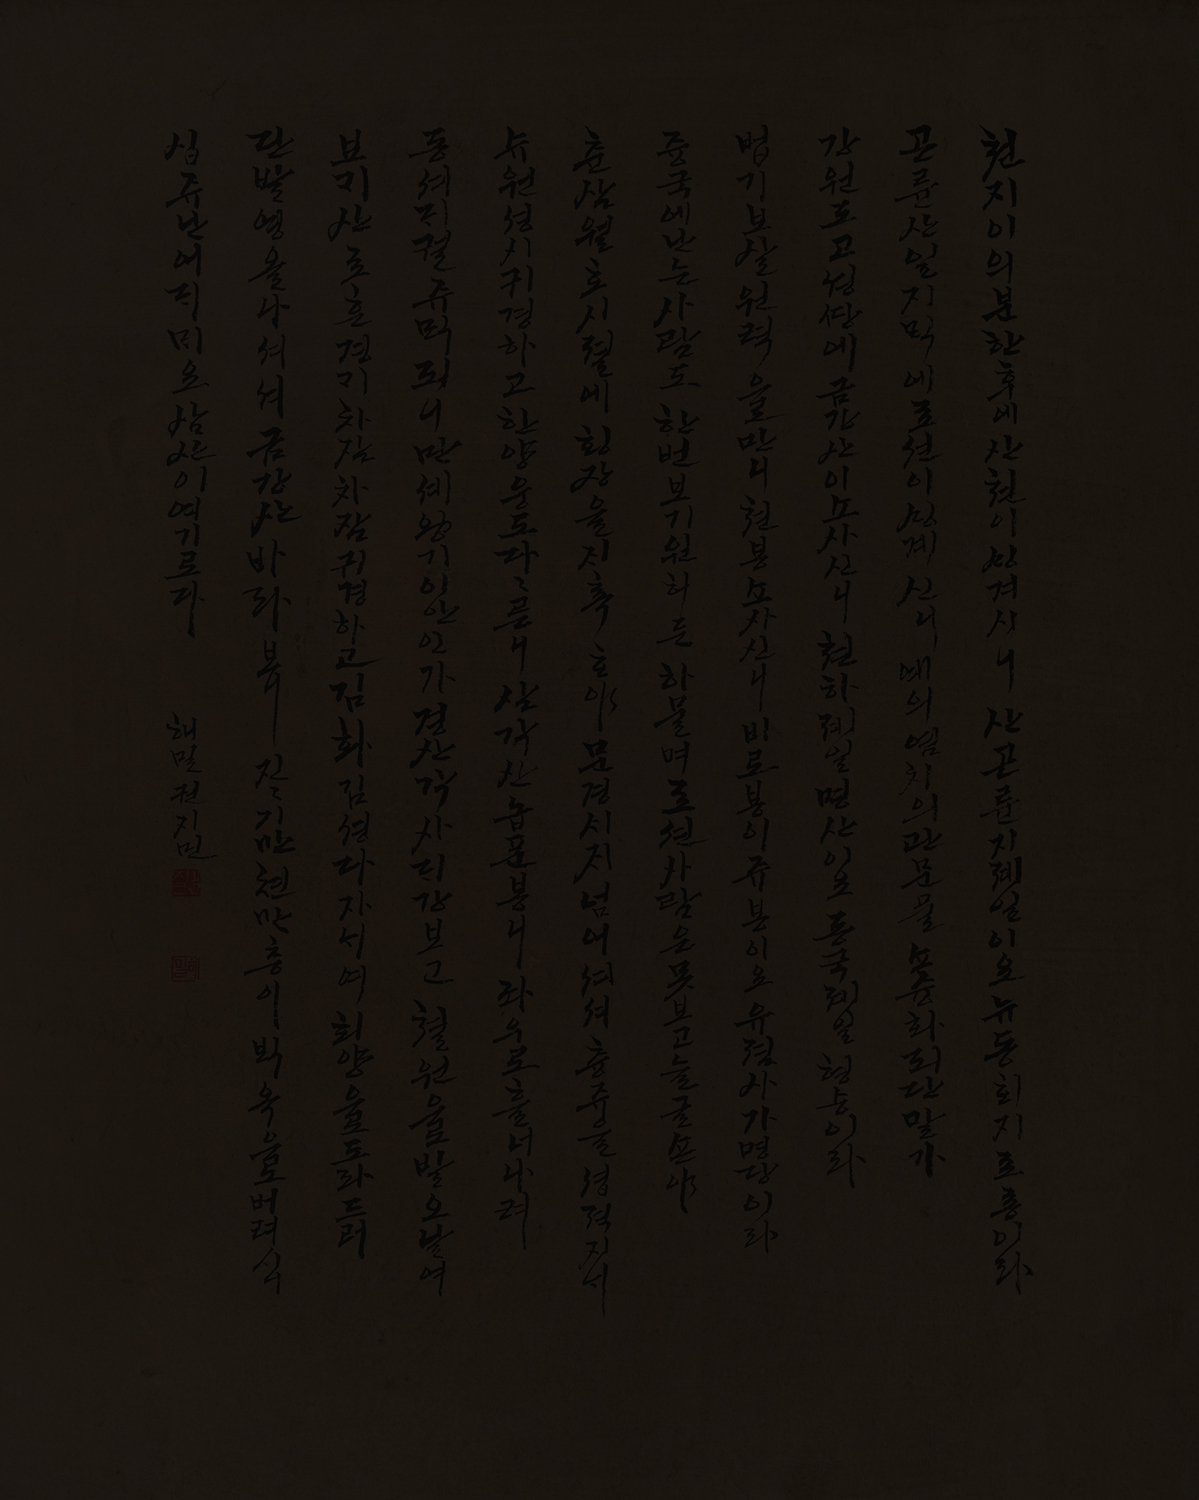 천지이의분한후에산천이싱겨사니 산곤륜지졔일이요뉴동회지죠종이라
곤륜산일지믹에죠션이싱계신니 예의염치의관문물 쇼즁화되단말가
강원도고셩땅에금강산이쇼사신니 쳔하졔일명산이요 동국졔일형승이라
법기보살원력을만니 쳔봉쇼사신니 비로봉이쥬봉이요 유졈사가명당이라
즁국에난는사람도 한번보기원하든 하물며죠션사람은못보고늘글손야
츈삼월호시졀에 힝장을지촉호야 문경시지넘어셔셔 츙쥬을셥젹지너
슈원셩시귀경하고 한양을도다른니 삼각산놉푼봉니 좌우로흘너나려
동셔지궐쥬믹되니 만셰왕기이안인가 경산각사디강보고 쳘원을발오날여
보기산로흔경기차잠차잠귀경하고 김화김셩다자셔여 회양을도라드러
단발영올나셔셔 금강산바라보니 진기만쳔만층이 빅옥을로버려시
십쥬난어디미요삼산이여기로다 해밀권지민